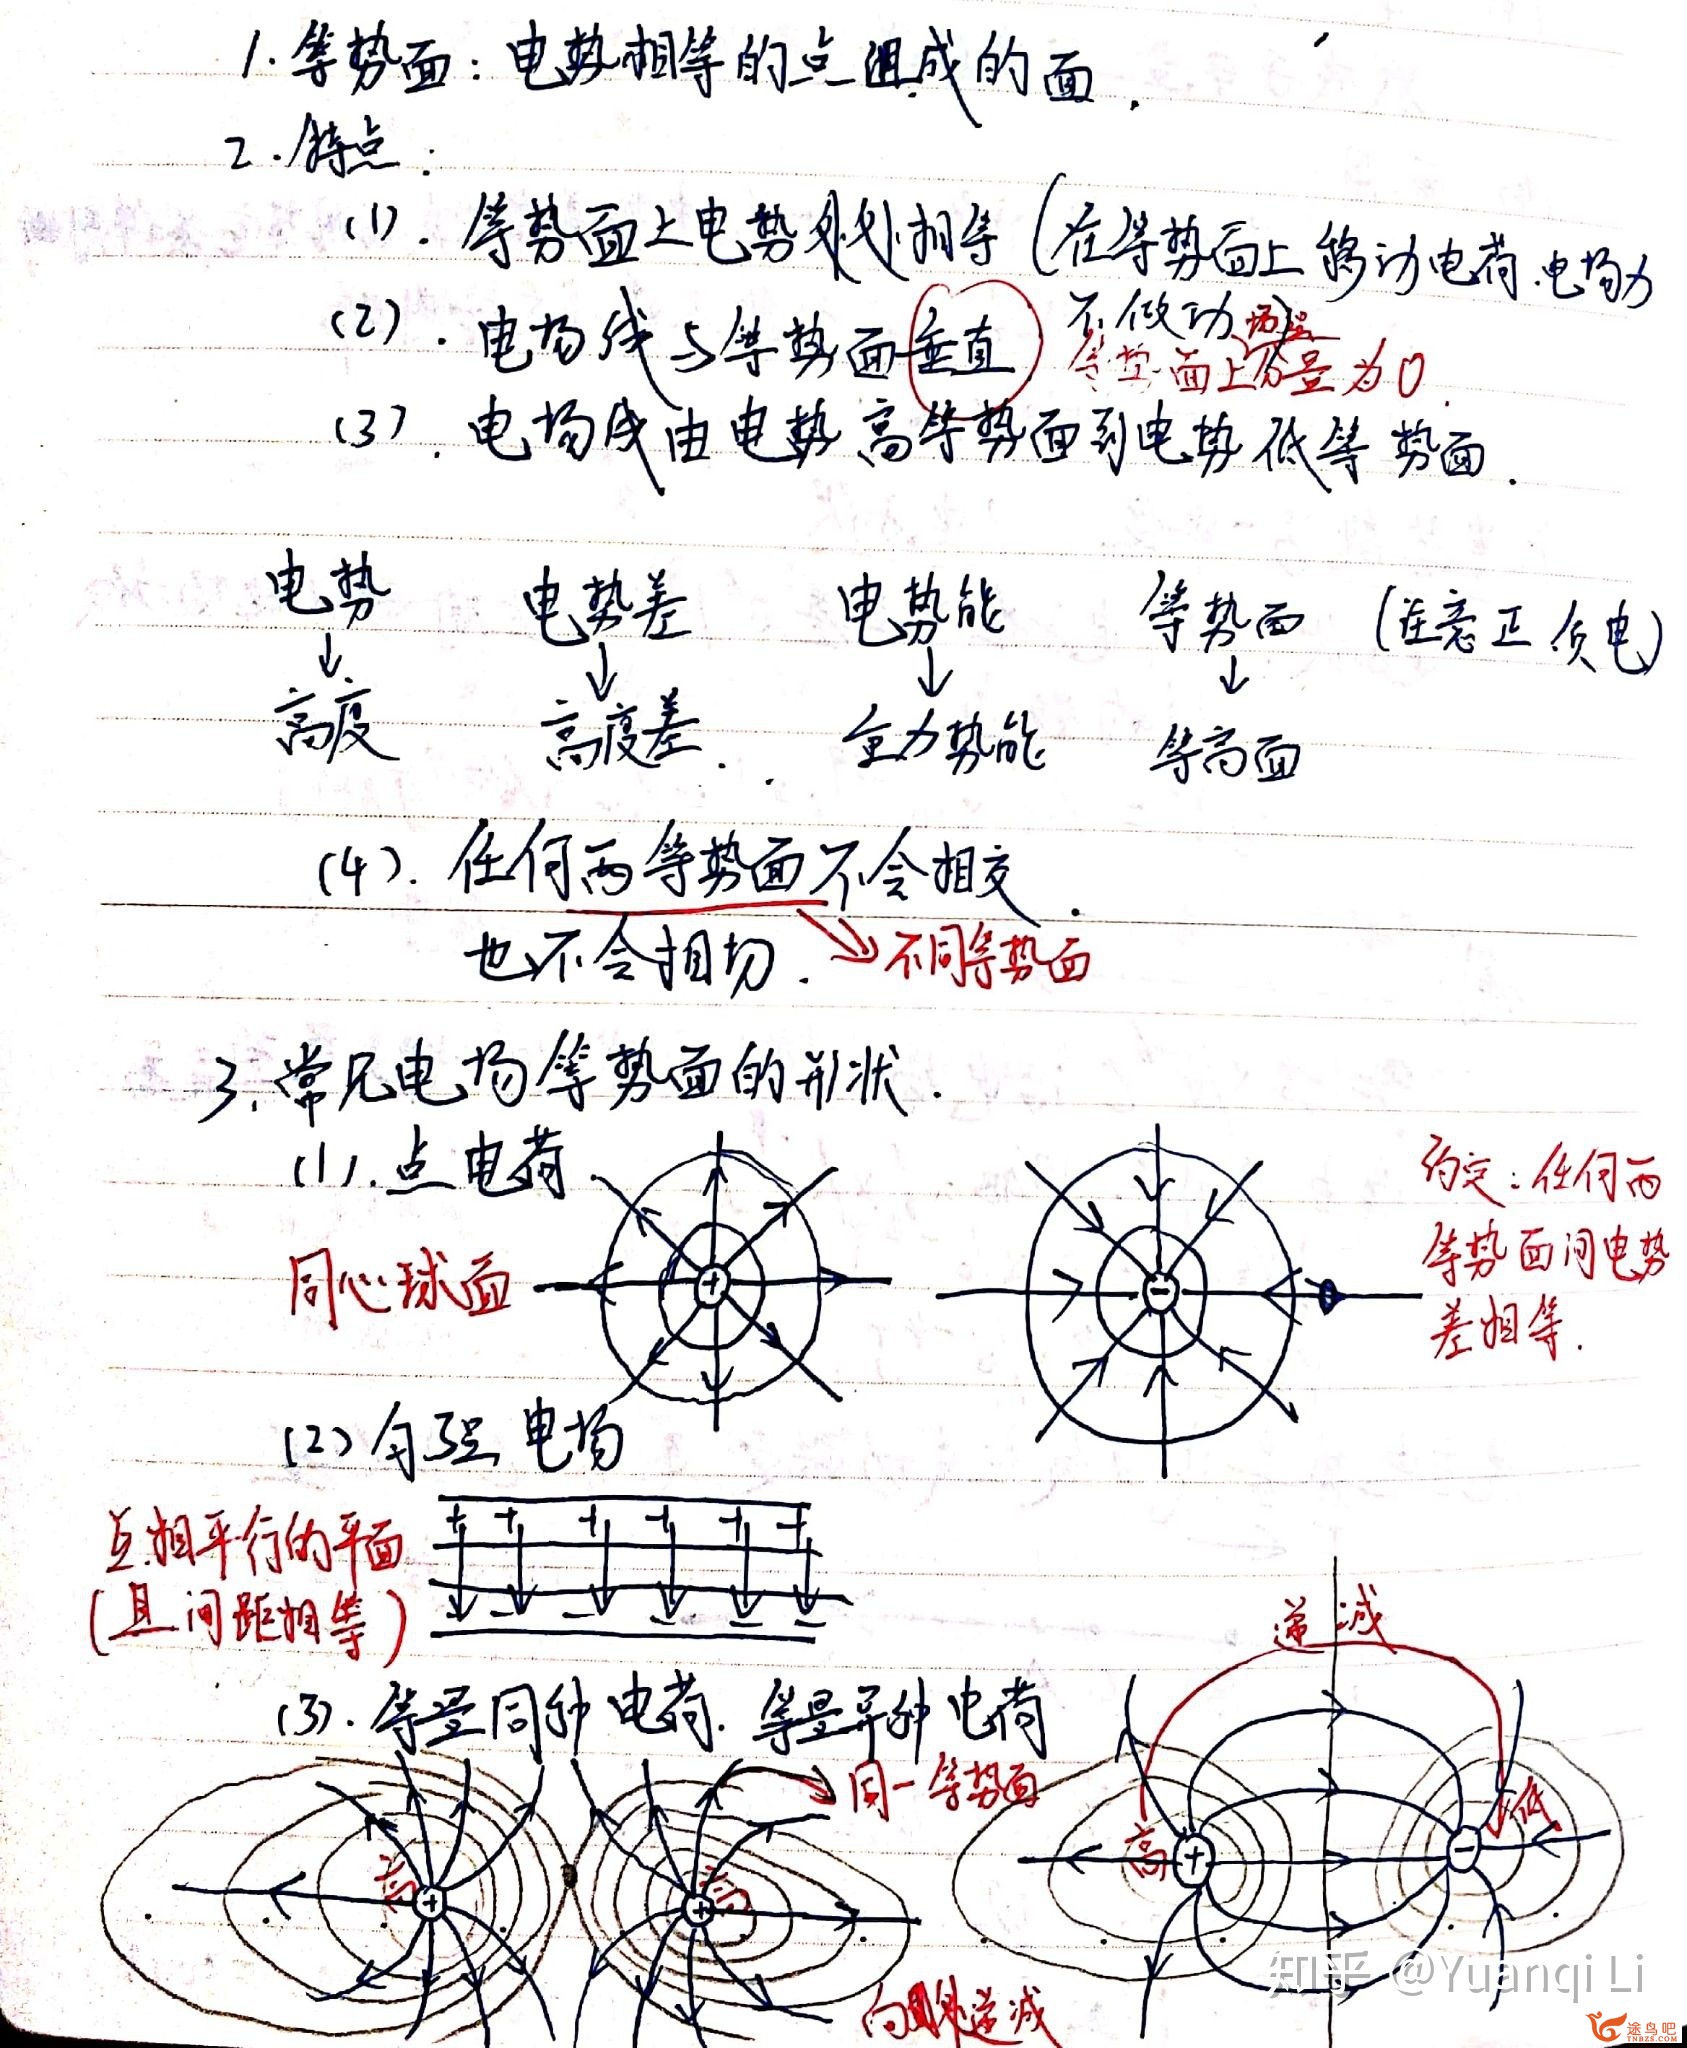 1. 等势面：电势相等的点组成的面.
2. 特点：
(1). 等势面上电势处处相等 (在等势面上移动电荷.电场力
不做功)
(2). 电场线与等势面垂直
场强
等势面上分量为0.
(3). 电场线由电势高等势面到电势低等势面.
电势 电势差 电势能 等势面 (注意正负电)
↓ ↓ ↓ ↓
高度 高度差. 重力势能 等高面
(4). 任何两等势面不会相交.
也不会相切. 不同等势面
3. 常见电场等势面的形状.
(1). 点电荷
同心球面
+
-
约定：任何两
等势面间电势
差相等.
(2) 匀强电场
互相平行的平面
(且间距相等)
+ + + + + +
- - - - -
递减
(3). 等量同种电荷. 等量异种电荷
同一等势面
高 + + 高
高 + - 低
向外递减
知乎 @Yuanqi Li
途鸟吧
TNBZS.COM